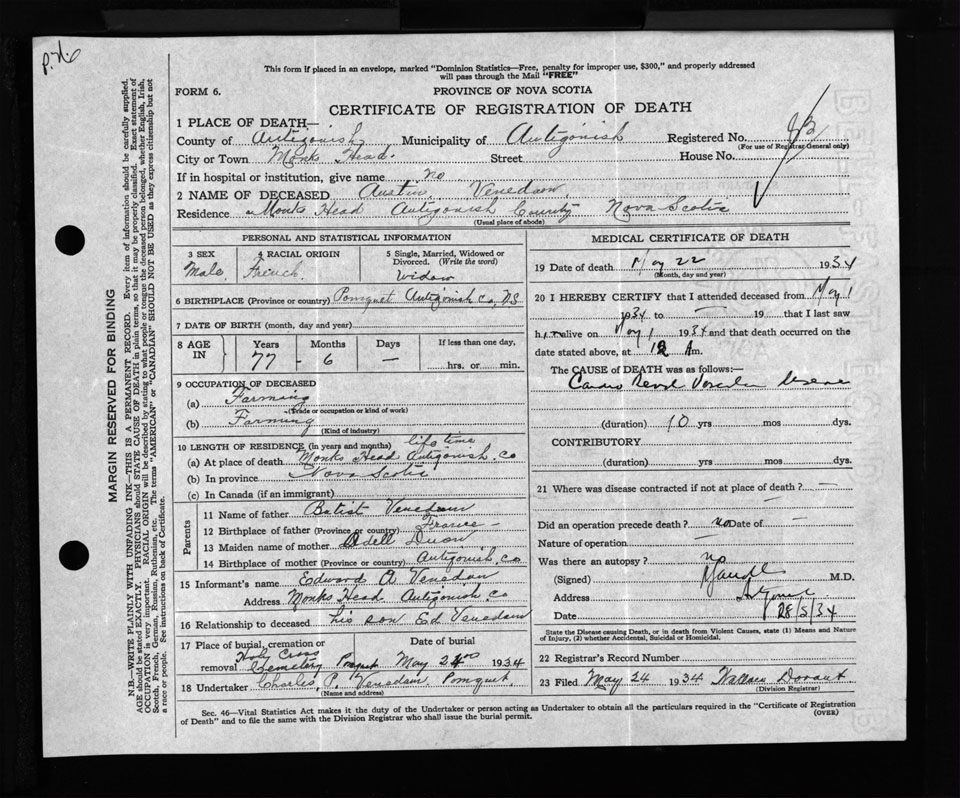 P.H.
This form if placed in an envelope, marked "Dominion Statistics—Free, penalty for improper use, $300," and properly addressed
will pass through the Mail "FREE"
FORM 6.
PROVINCE OF NOVA SCOTIA
CERTIFICATE OF REGISTRATION OF DEATH
1 PLACE OF DEATH—
County of Antigonish Municipality of Antigonish Registered No.
(For use of Registrar General only)
City or Town Monks Head. Street House No.
If in hospital or institution, give name no
2 NAME OF DECEASED Austin Venedam
Residence Monks Head Antigonish County Nova Scotia
(Usual place of abode)
PERSONAL AND STATISTICAL INFORMATION
3 SEX Male. 4 RACIAL ORIGIN French 5 Single, Married, Widowed or
Divorced. (Write the word)
Widow
6 BIRTHPLACE (Province or country) Pomquet Antigonish Co, NS
7 DATE OF BIRTH (month, day and year)
8 AGE IN Years 77 - Months 6 Days — If less than one day,
hrs. or min.
9 OCCUPATION OF DECEASED
(a) Farming
(Trade or occupation or kind of work)
(b) Farming
(Kind of industry)
10 LENGTH OF RESIDENCE (in years and months) life time
(a) At place of death Monks Head Antigonish. Co
(b) In province Nova Scotia
(c) In Canada (if an immigrant)
Parents
11 Name of father Batist Venedam
12 Birthplace of father (Province or country) France -
13 Maiden name of mother Adell
14 Birthplace of mother (Province or country) Antigonish. Co
15 Informant's name Edward A Venedam
Address Monks Head Antigonish. Co
16 Relationship to deceased his son Ed Venedam
17 Place of burial, cremation or
removal Holy Cross Cemetery Pomquet
Date of burial
May 24 1934
18 Undertaker Charles. P. Venedam Pomquet.
(Name and address)
MEDICAL CERTIFICATE OF DEATH
19 Date of death May 22 1934
(Month, day and year)
20 I HEREBY CERTIFY that I attended deceased from May 1
1934 to — 19 that I last saw
him alive on May 1 1934 and that death occurred on the
date stated above, at 12 Am.
The CAUSE of DEATH was as follows:—
Cardio Renal Vascular disease
(duration) 10 yrs mos dys.
CONTRIBUTORY
(duration) yrs. mos. dys.
21 Where was disease contracted if not at place of death? —
Did an operation precede death? no Date of —
Nature of operation —
Was there an autopsy? no
(Signed) M.D.
Address
Date 28/5/34
State the Disease causing Death, or in death from Violent Causes, state (1) Means and Nature
of Injury, (2) whether Accidental, Suicidal or Homicidal.
22 Registrar's Record Number
23 Filed May 24 1934 Wallace
(Division Registrar)
Sec. 46—Vital Statistics Act makes it the duty of the Undertaker or person acting as Undertaker to obtain all the particulars required in the "Certificate of Registration
of Death" and to file the same with the Division Registrar who shall issue the burial permit.
(OVER)
MARGIN RESERVED FOR BINDING
N.B.—WRITE PLAINLY WITH UNFADING INK—THIS IS A PERMANENT RECORD. Every item of information should be carefully supplied.
AGE should be stated EXACTLY. PHYSICIANS should STATE CAUSE OF DEATH in plain terms, so that it may be properly classified. Exact statement of
OCCUPATION is very important. RACIAL ORIGIN will be described by stating to what people or tongue the deceased person belonged, whether English, Irish,
Scotch, French, German, Russian, Ruthenian, etc. The terms "AMERICAN" or "CANADIAN" SHOULD NOT BE USED as they express citizenship but not
a race or people. See instructions on back of Certificate.